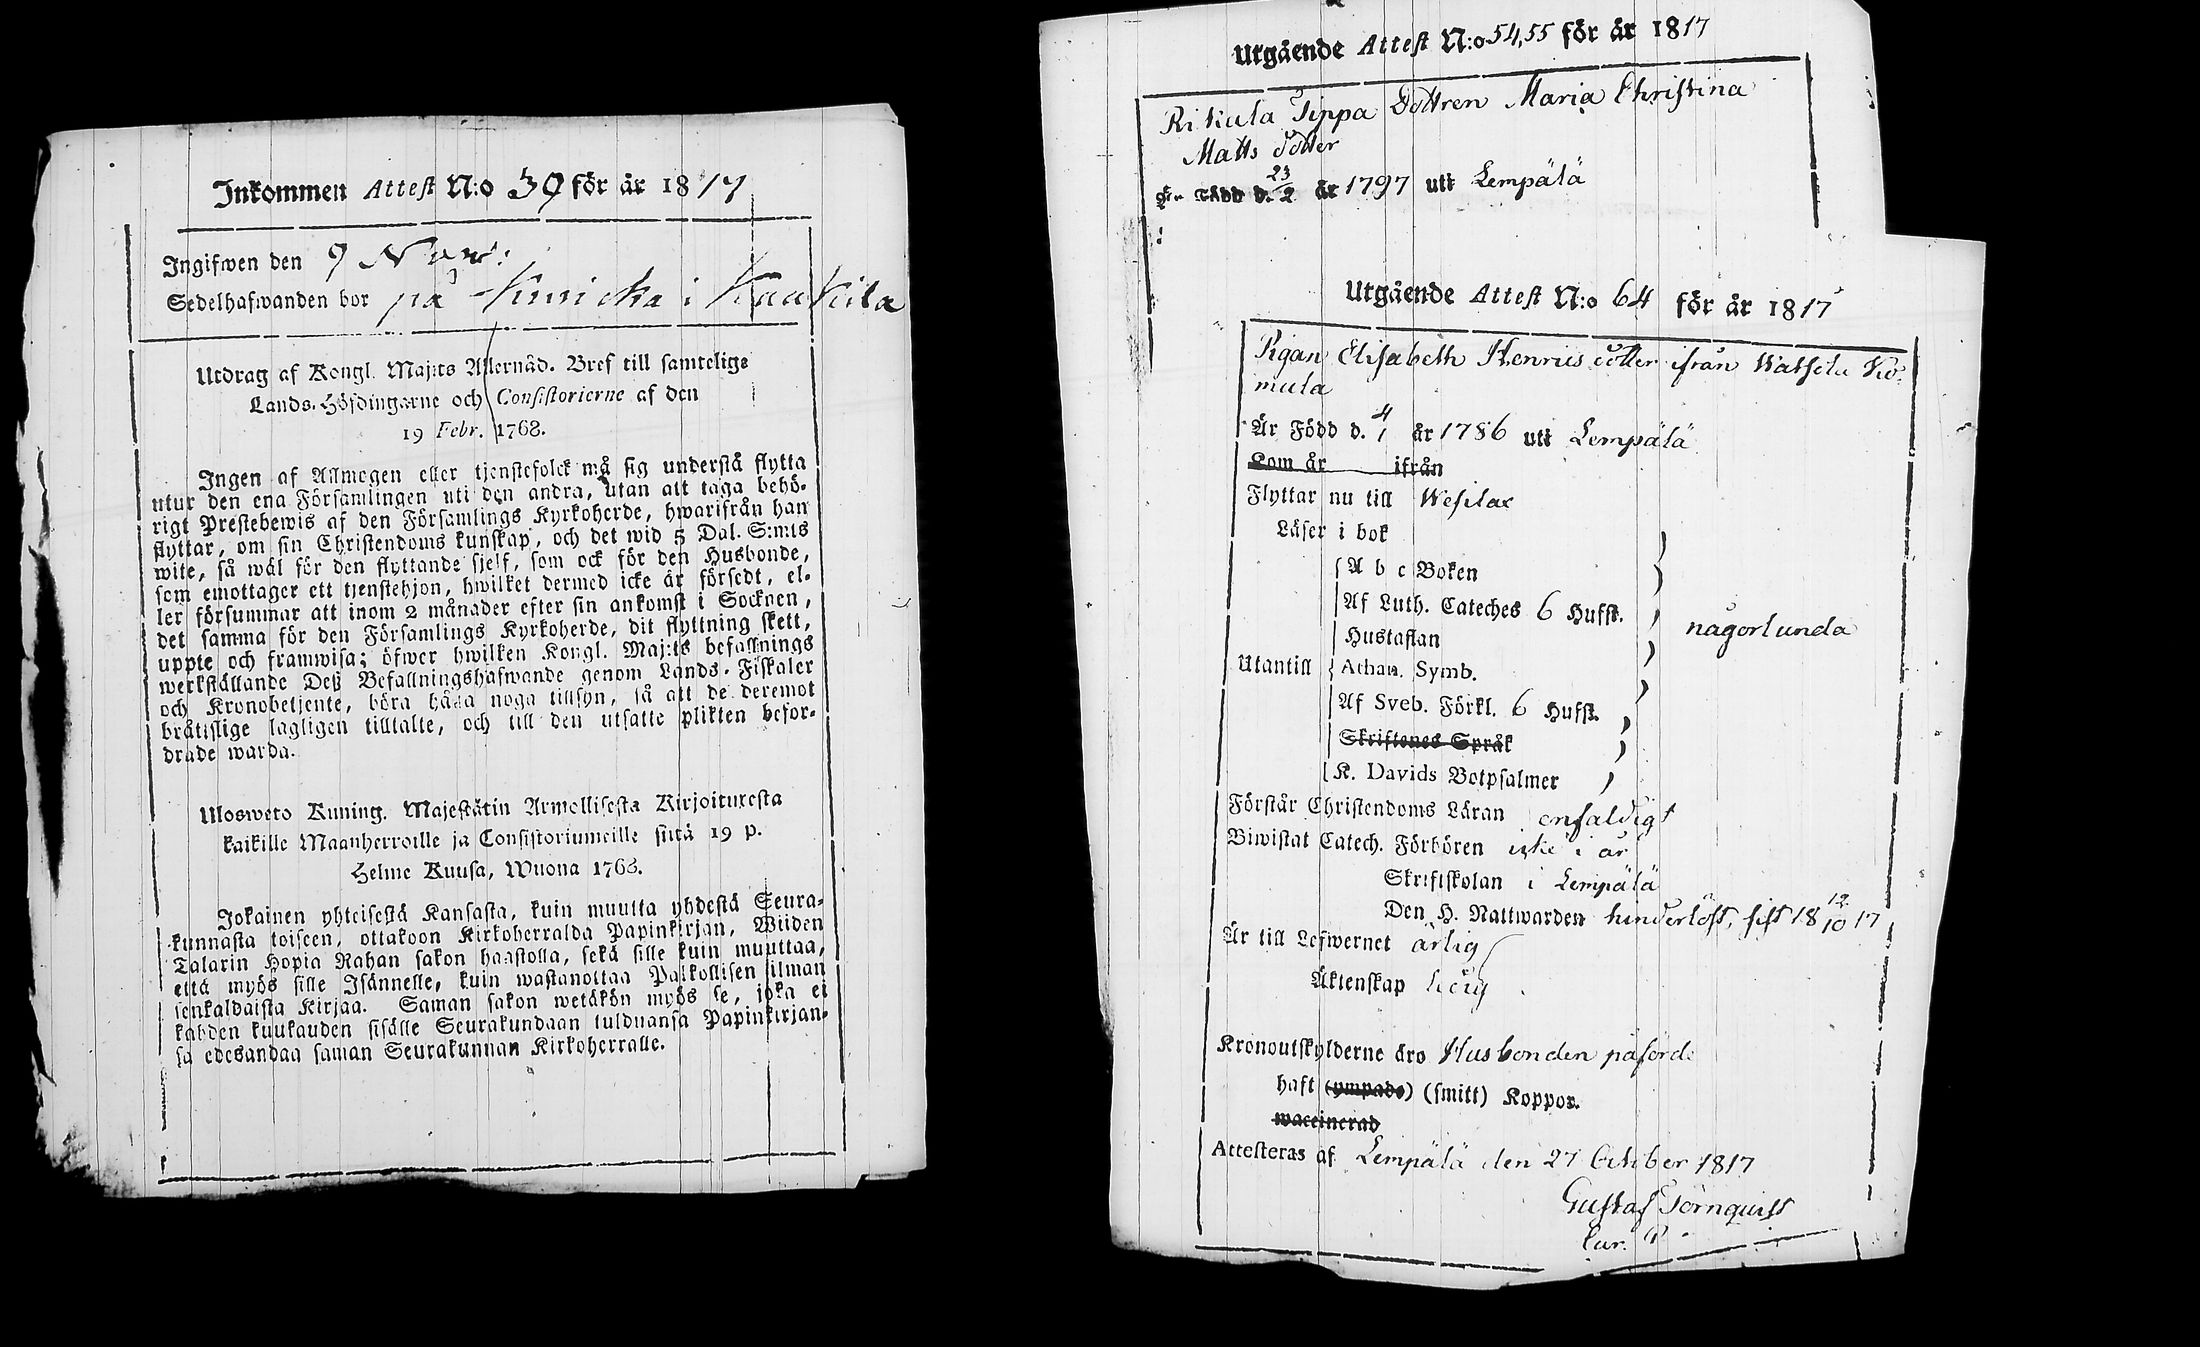 Inkommen Attest N:o 39 för år 1817
Ingifwen den 9 Nov:
Sedelhafwanden bor på Knuicka i Kaukila
Utdrag af Kongl. Maj:ts Allernåd. Bref till samtelige
Lands-Höfdingarne och Consistorierne af den
19 Febr. 1768.
Ingen af Allmogen eller tjenstefolck må sig understå flytta
utur den ena Församlingen uti den andra, utan att taga behö-
rigt Prestebewis af den Församlings Kyrkoherde, hwarifrån han
flyttar, om sin Christendoms kunskap, och det wid 5 Dal. S:mts
wite, så wäl för den flyttande sjelf, som ock för den Husbonde,
som emottager ett tjenstehjon, hwilket dermed icke är försedt, el-
ler försummar att inom 2 månader efter sin ankomst i Socknen,
det samma för den Församlings Kyrkoherde, dit flyttning skett,
uppte och framwisa; öfwer hwilken Kongl. Maj:ts befallnings
werkställande Deß Befallningshafwande genom Lands-Fiskaler
och Kronobetjente, böra hålla noga tillsyn, så att de deremot
bråtislige lagligen tilltalte, och till den utsatte plikten befor-
drade warda.
Ulosweto Kuning. Majestätin Armollisesta Kirjoituxesta
kaikille Maanherroille ja Consistoriumeille siitä 19 p.
Helme Kuusa, Wuona 1768.
Jokainen yhteisestä Kansasta, kuin muutta yhdestä Seura-
kunnasta toiseen, ottakoon Kirkoherralda Papinkirjan, Wiiden
Talarin Hopia Rahan sakon haastolla, sekä sille kuin muuttaa,
että myös sille Isännelle, kuin wastanottaa Palkollisen ilman
senkaldaista Kirjaa. Saman sakon wetäkön myös se, joka ei
kahden kuukauden sisälle Seurakundaan tulduansa Papinkirjan-
sa edesandaa saman Seurakunnan Kirkoherralle.
Utgående Attest N:o 54,55 för år 1817
Rikula Jippa Dottren Maria Christina
Matts dotter
Är Född d. 23/2 år 1797 uti Lempälä
Utgående Attest N:o 64 för år 1817
Pigan Elisabeth Henrics dotter ifrån Kuo-
mula
Är Född d. 4/1 år 1786 uti Lempälä
Kom år ifrån
Flyttar nu till Wesilax
Läser i bok
A b c Boken
Af Luth. Cateches 6 Hufst.
Hustaflan
någorlunda
Utantill Athan. Symb.
Af Sveb. Förkl. 6 Hufst.
Skriftenes Språk
K. Davids Botpsalmer
Förstår Christendoms Läran enfaldigt
Biwistat Catech. Förhören icke i år
Skriftskolan i Lempälä
Den H. Nattwarden hinderlöst, sist 18 12/10 17
Är till Lefwernet ärlig
Äktenskap ledig
Kronoutskylderne äro Husbonden påförde
haft (ympade) (smitt) Koppor.
waccinerad
Attesteras af Lempälä den 27 October 1817
Gustaf Törnquist
Cur. P.